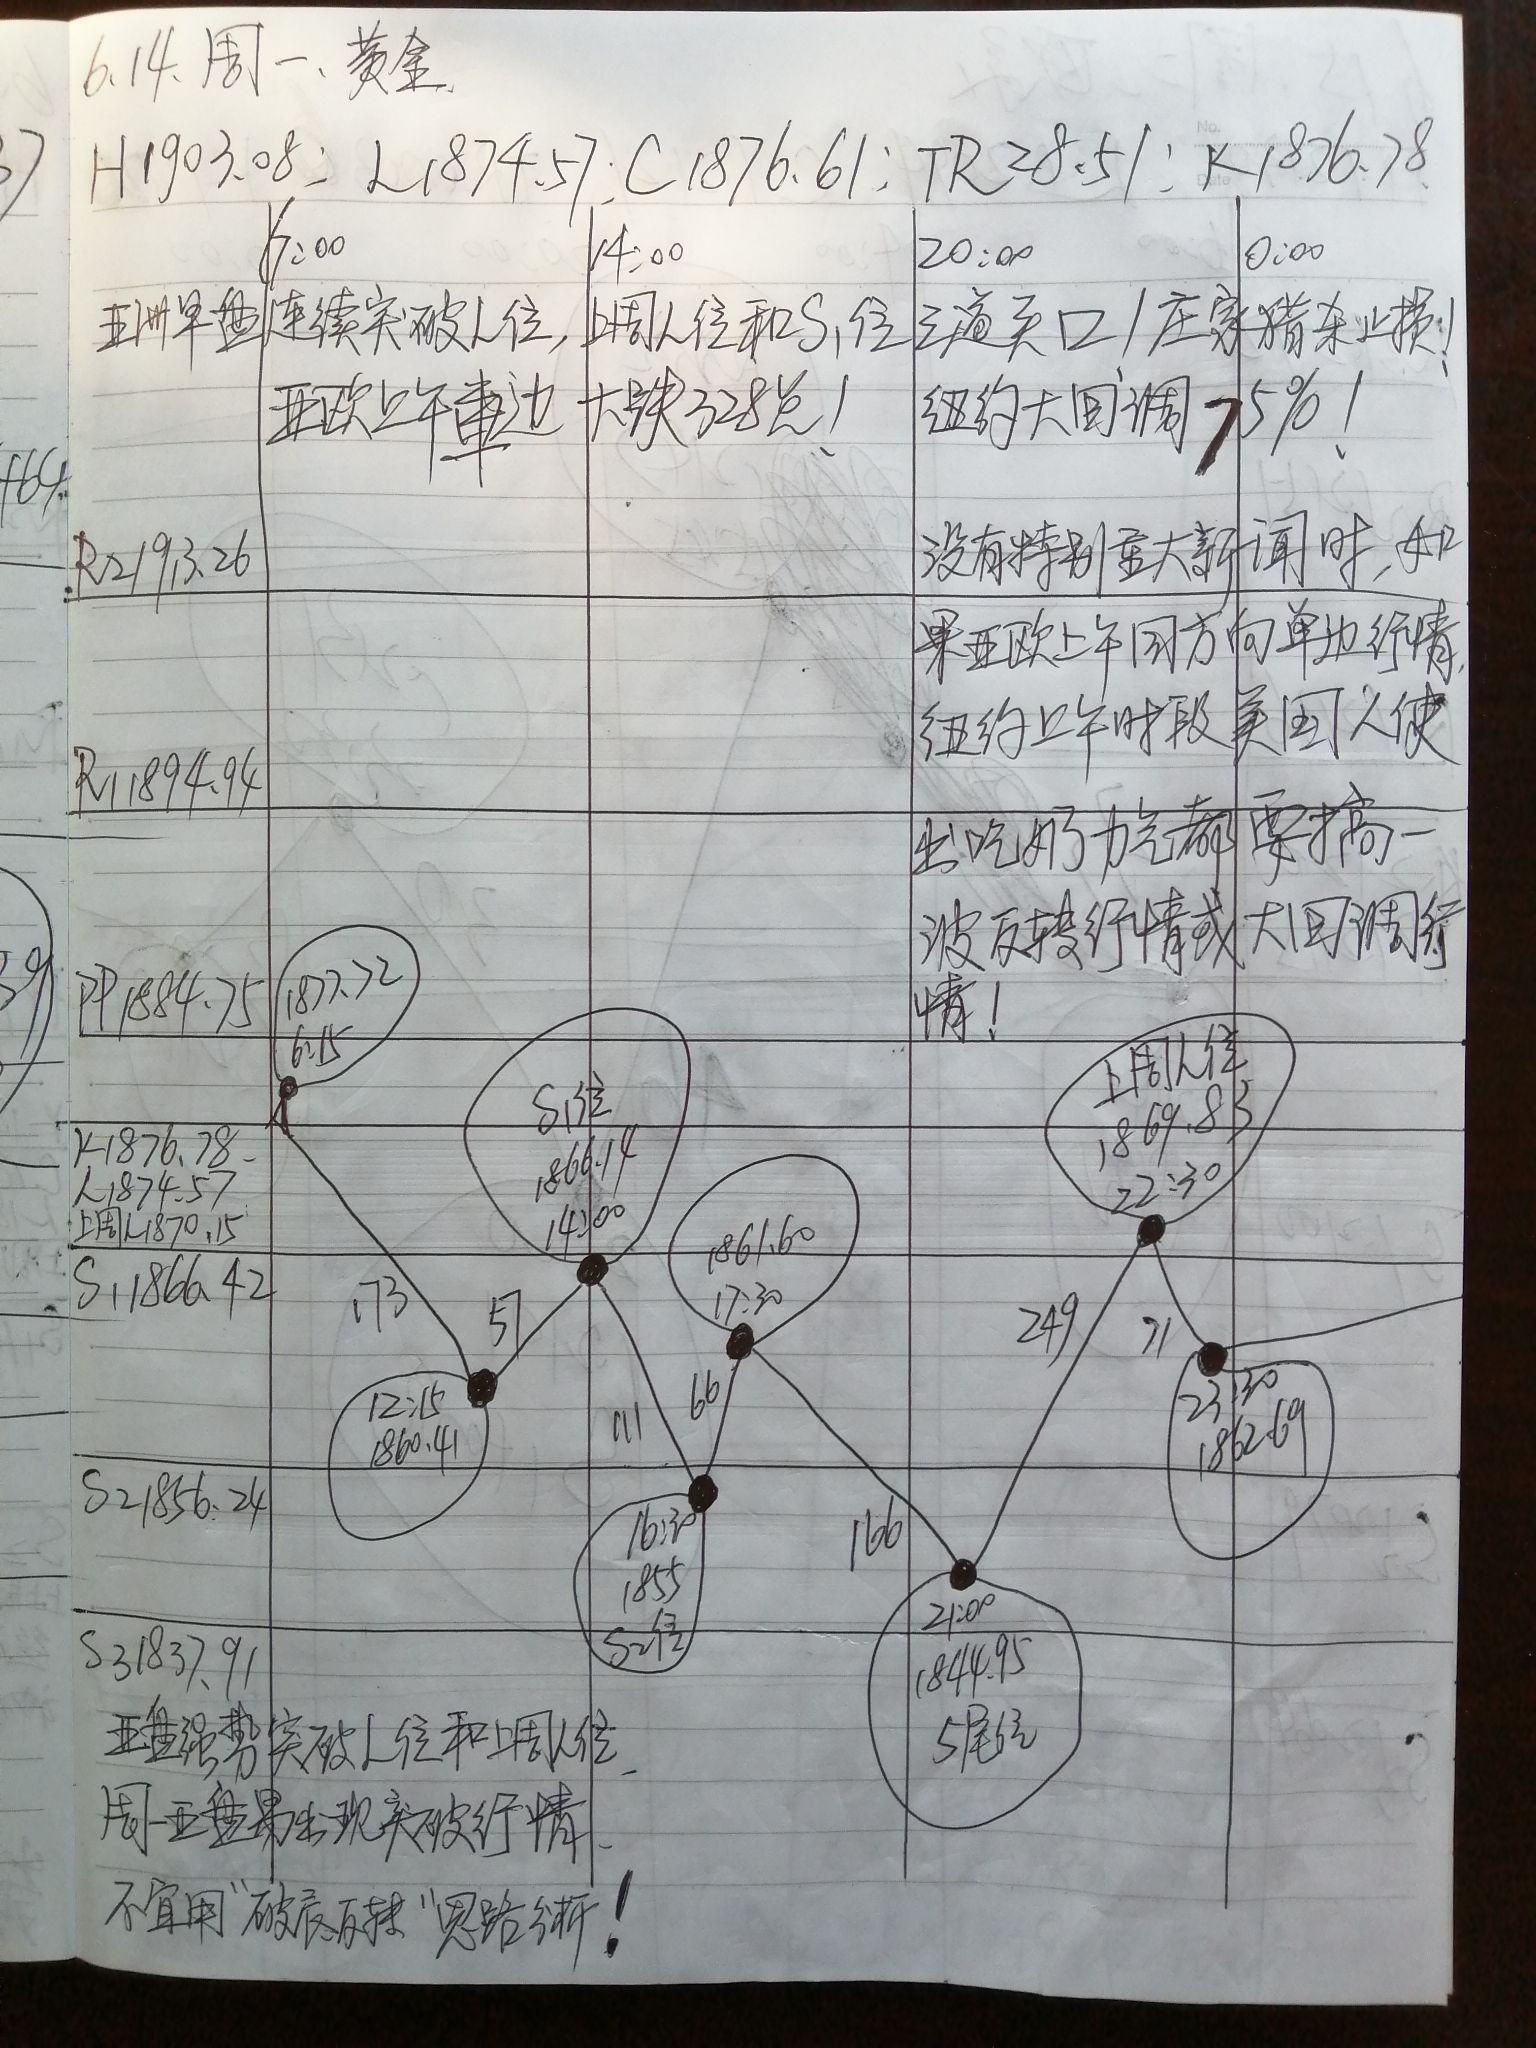 6.14.周一、黄金.
H1903.08; L1874.57; C1876.61; TR28.51; K1876.78
6:00 14:00 20:00 0:00
亚洲早盘连续突破L位,上周L位和S1位三道关口/庄家猎杀止损!
亚欧上午单边大跌328点! 纽约大回调75%!
R21913.26
没有特别重大新闻时,如
果亚欧上午同方向单边行情,
纽约上午时段美国人使
R11894.94
出吃奶力气都要搞一
波反转行情或大回调行
情!
PP1884.75
1877.72
6:15
K1876.78
L1874.57
上周L1870.15
S1位
1866.14
14:00
上周L位
1869.83
22:30
1861.60
17:30
S11866.42
173
57
111
66
166
249
71
12:15
1860.41
23:30
1862.69
S21856.24
16:30
1855
S2位
21:00
1844.95
5尾位
S31837.91
亚盘强势突破L位和上周L位、
周一亚盘易出现突破行情、
不宜用"破底反转"思路分析!